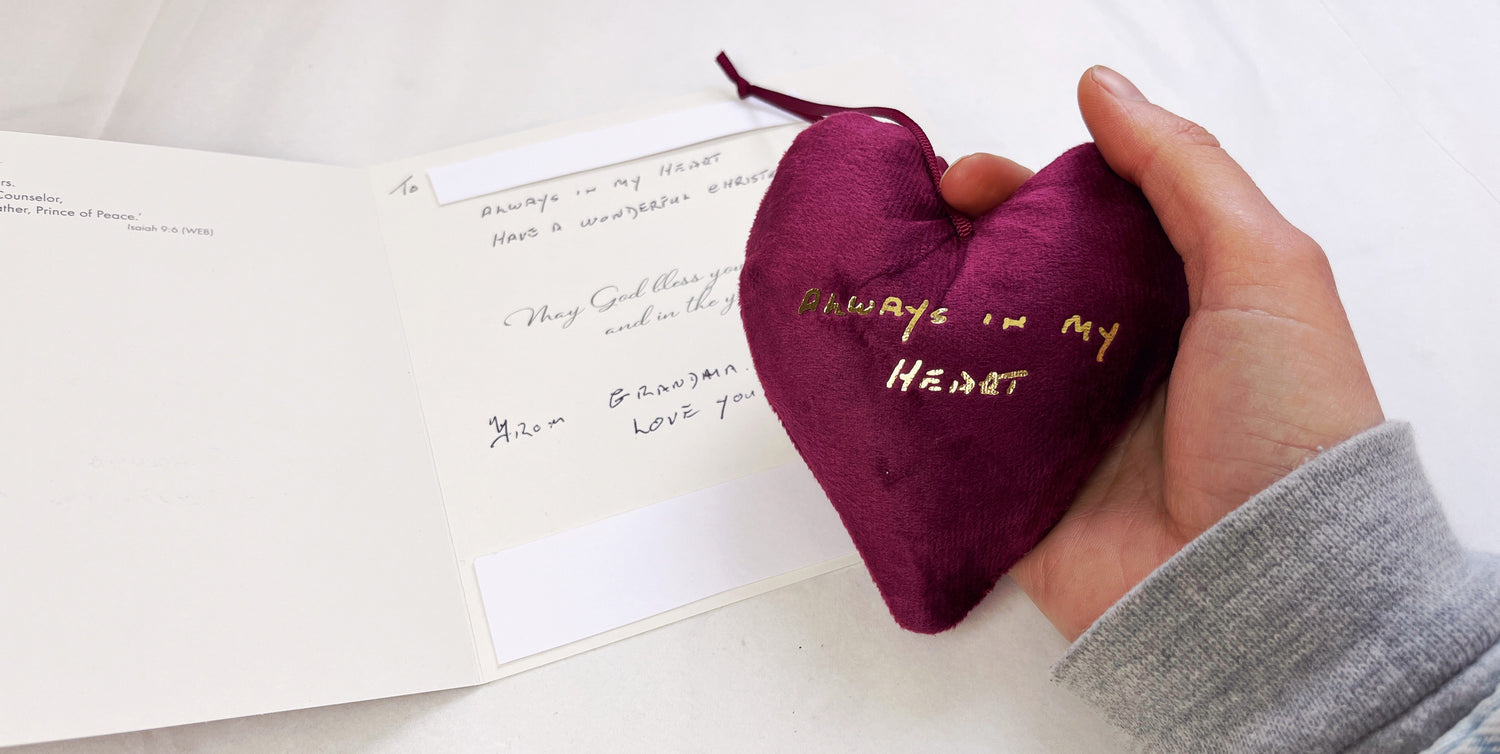 rs.
Counselor,
ather, Prince of Peace.'
Isaiah 9:6 (WEB)
To
ALWAYS IN MY HEART
HAVE A WONDERFUL CHRIST
May God bless you
and in the y
From GRANDMA.
LOVE YOU
ALWAYS IN MY
HEART